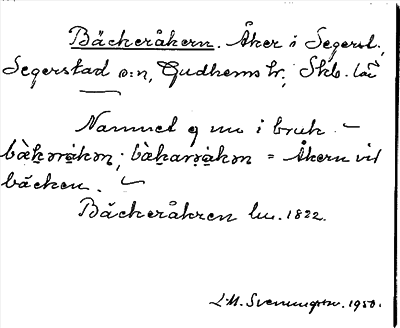 Bäckeråkern. Åker i Segerst.,
Segerstad s:n, Gudhems hr, Skb. län
Namnet ej nu i bruk. –
; = Åkern vid
bäcken. –
Bäckeråkren lm. 1822.
L.M. Svenungsson. 1950.